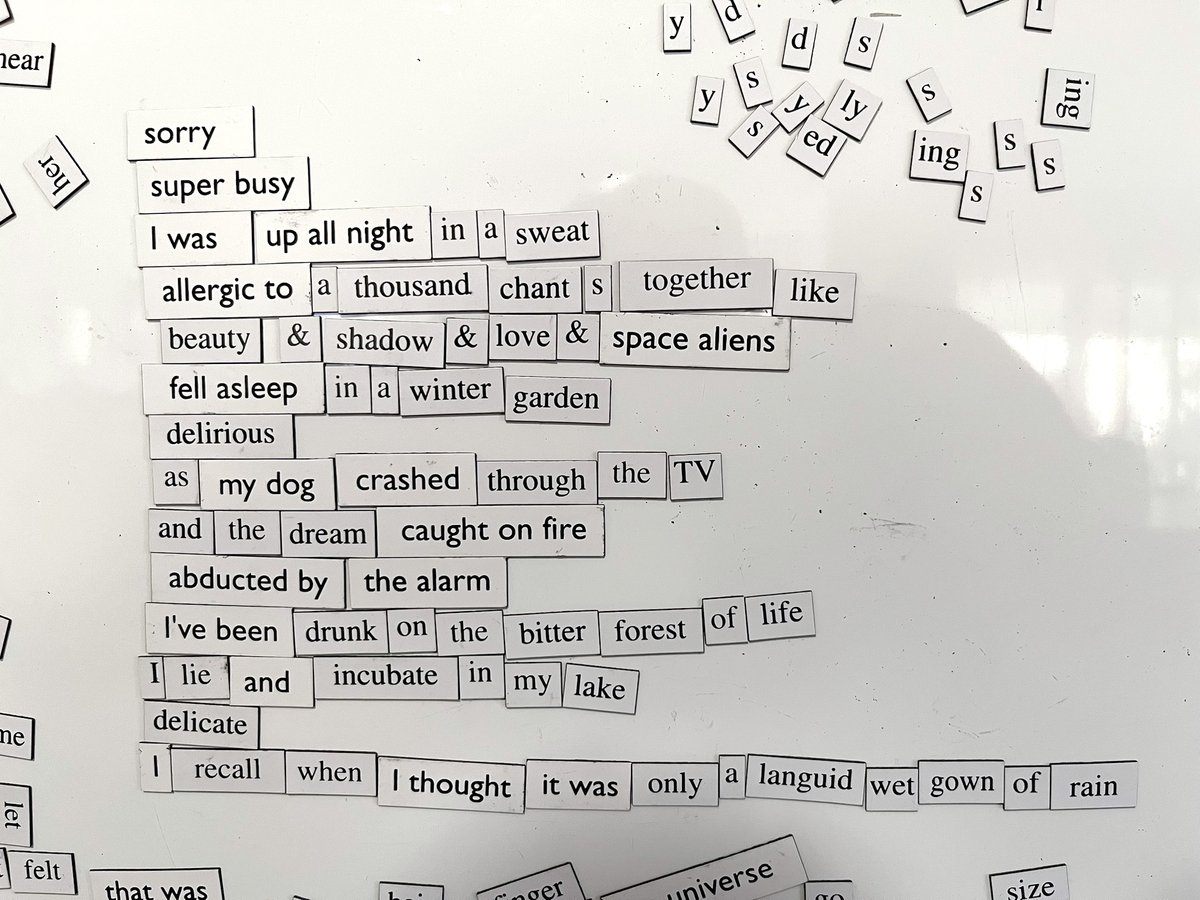 y d d s
y s y ly s ing
s ed ing s s
s
her
sorry
super busy
I was up all night in a sweat
allergic to a thousand chant s together like
beauty & shadow & love & space aliens
fell asleep in a winter garden
delirious
as my dog crashed through the TV
and the dream caught on fire
abducted by the alarm
I've been drunk on the bitter forest of life
I lie and incubate in my lake
delicate
I recall when I thought it was only a languid wet gown of rain
let
felt
that was universe size